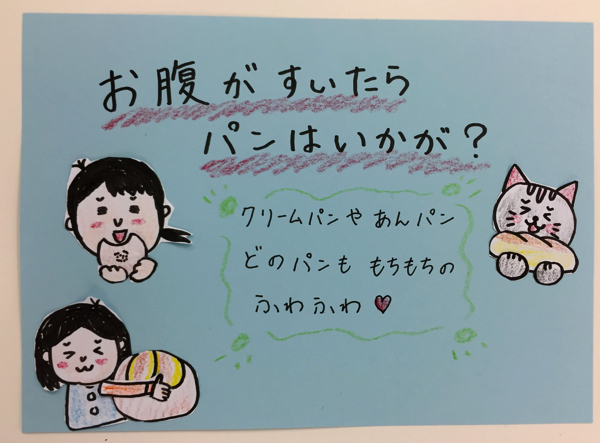 お腹がすいたら
パンはいかが?
クリームパンや あんパン
どのパンも もちもちの
ふわふわ♥